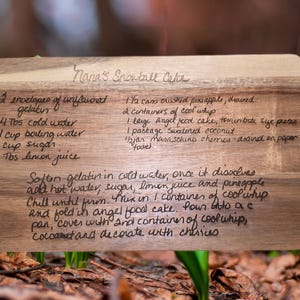 Nana's Snowball Cake
2 envelopes of unflavored
gelatin
4 Tbs cold water
1 cup boiling water
1 cup sugar
Tbs lemon juice
1 1/2 cans crushed pineapple, drained
2 containers of cool whip
1 large angel food cake, torn into size pieces
1 package sweetened coconut
1 jar maraschino cherries - drained on paper
towel
Soften gelatin in cold water, once it dissolves
add hot water, sugar, lemon juice and pineapple
Chill until firm. Mix in 1 container of cool whip
and fold in angel food cake. Pour into a
pan, cover with 2nd container of cool whip,
coconut and decorate with cherries